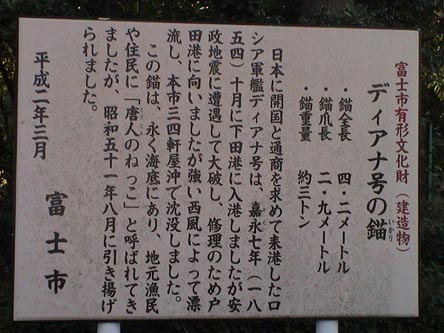 富士市有形文化財（建造物）
ディアナ号の錨
いかり
・錨全長　四・二メートル
・錨爪長　二・九メートル
・錨重量　約三トン
日本に開国と通商を求めて来港したロ
シア軍艦ディアナ号は、嘉永七年（一八
五四）十月に下田港に入港しましたが安
政地震に遭遇して大破し、修理のため戸
田港に向いましたが強い西風によって漂
流し、本市三四軒屋沖で沈没しました。
この錨は、永く海底にあり、地元漁民
や住民に「唐人のねっこ」と呼ばれてき
ましたが、昭和五十一年八月に引き揚げ
られました。
平成二年三月
富士市